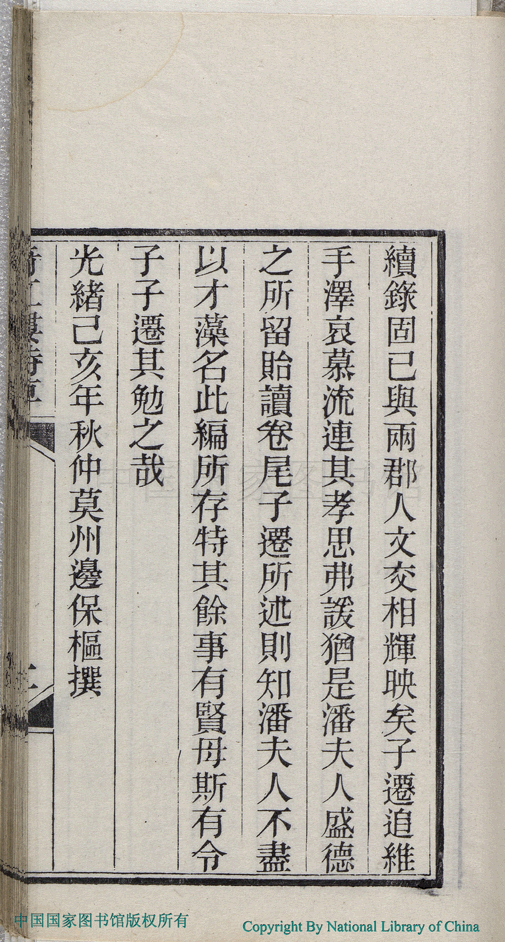 續錄固已與兩郡人文交相輝映矣子遷追維
手澤哀慕流連其孝思弗諼猶是潘夫人盛德
之所留貽讀卷尾子遷所述則知潘夫人不盡
以才藻名此編所存特其餘事有賢母斯有令
子子遷其勉之哉
光緒己亥年秋仲莫州邊保樞撰
中国国家图书馆版权所有
Copyright By National Library of China